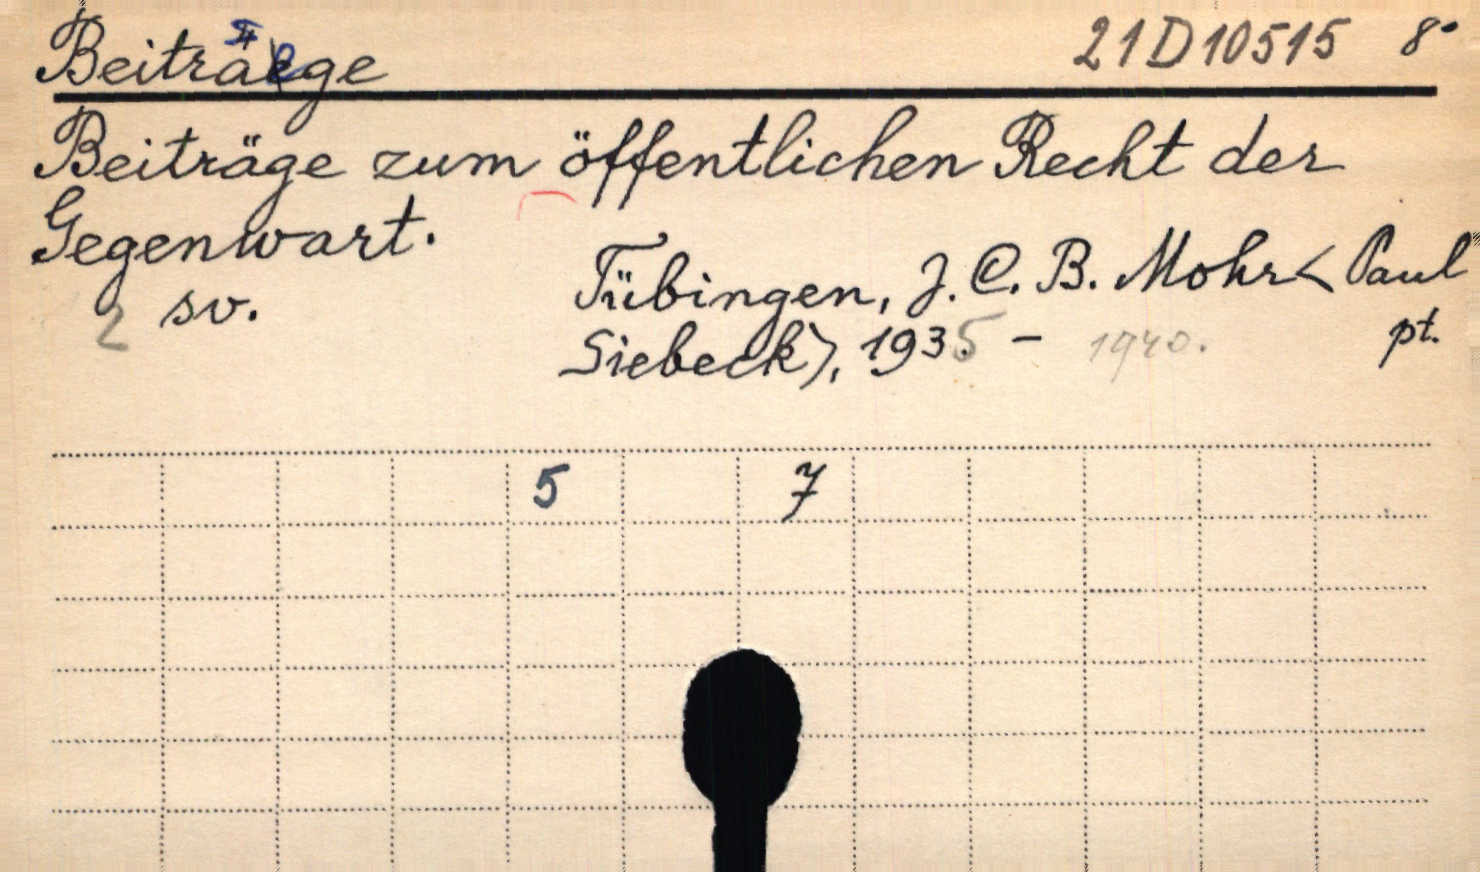 Beiträge 21D10515 8°
Beiträge zum öffentlichen Recht der
Gegenwart.
2 sv. Tübingen, J. C. B. Mohr < Paul
Siebeck>, 1935 - 1940. pt.
5 7